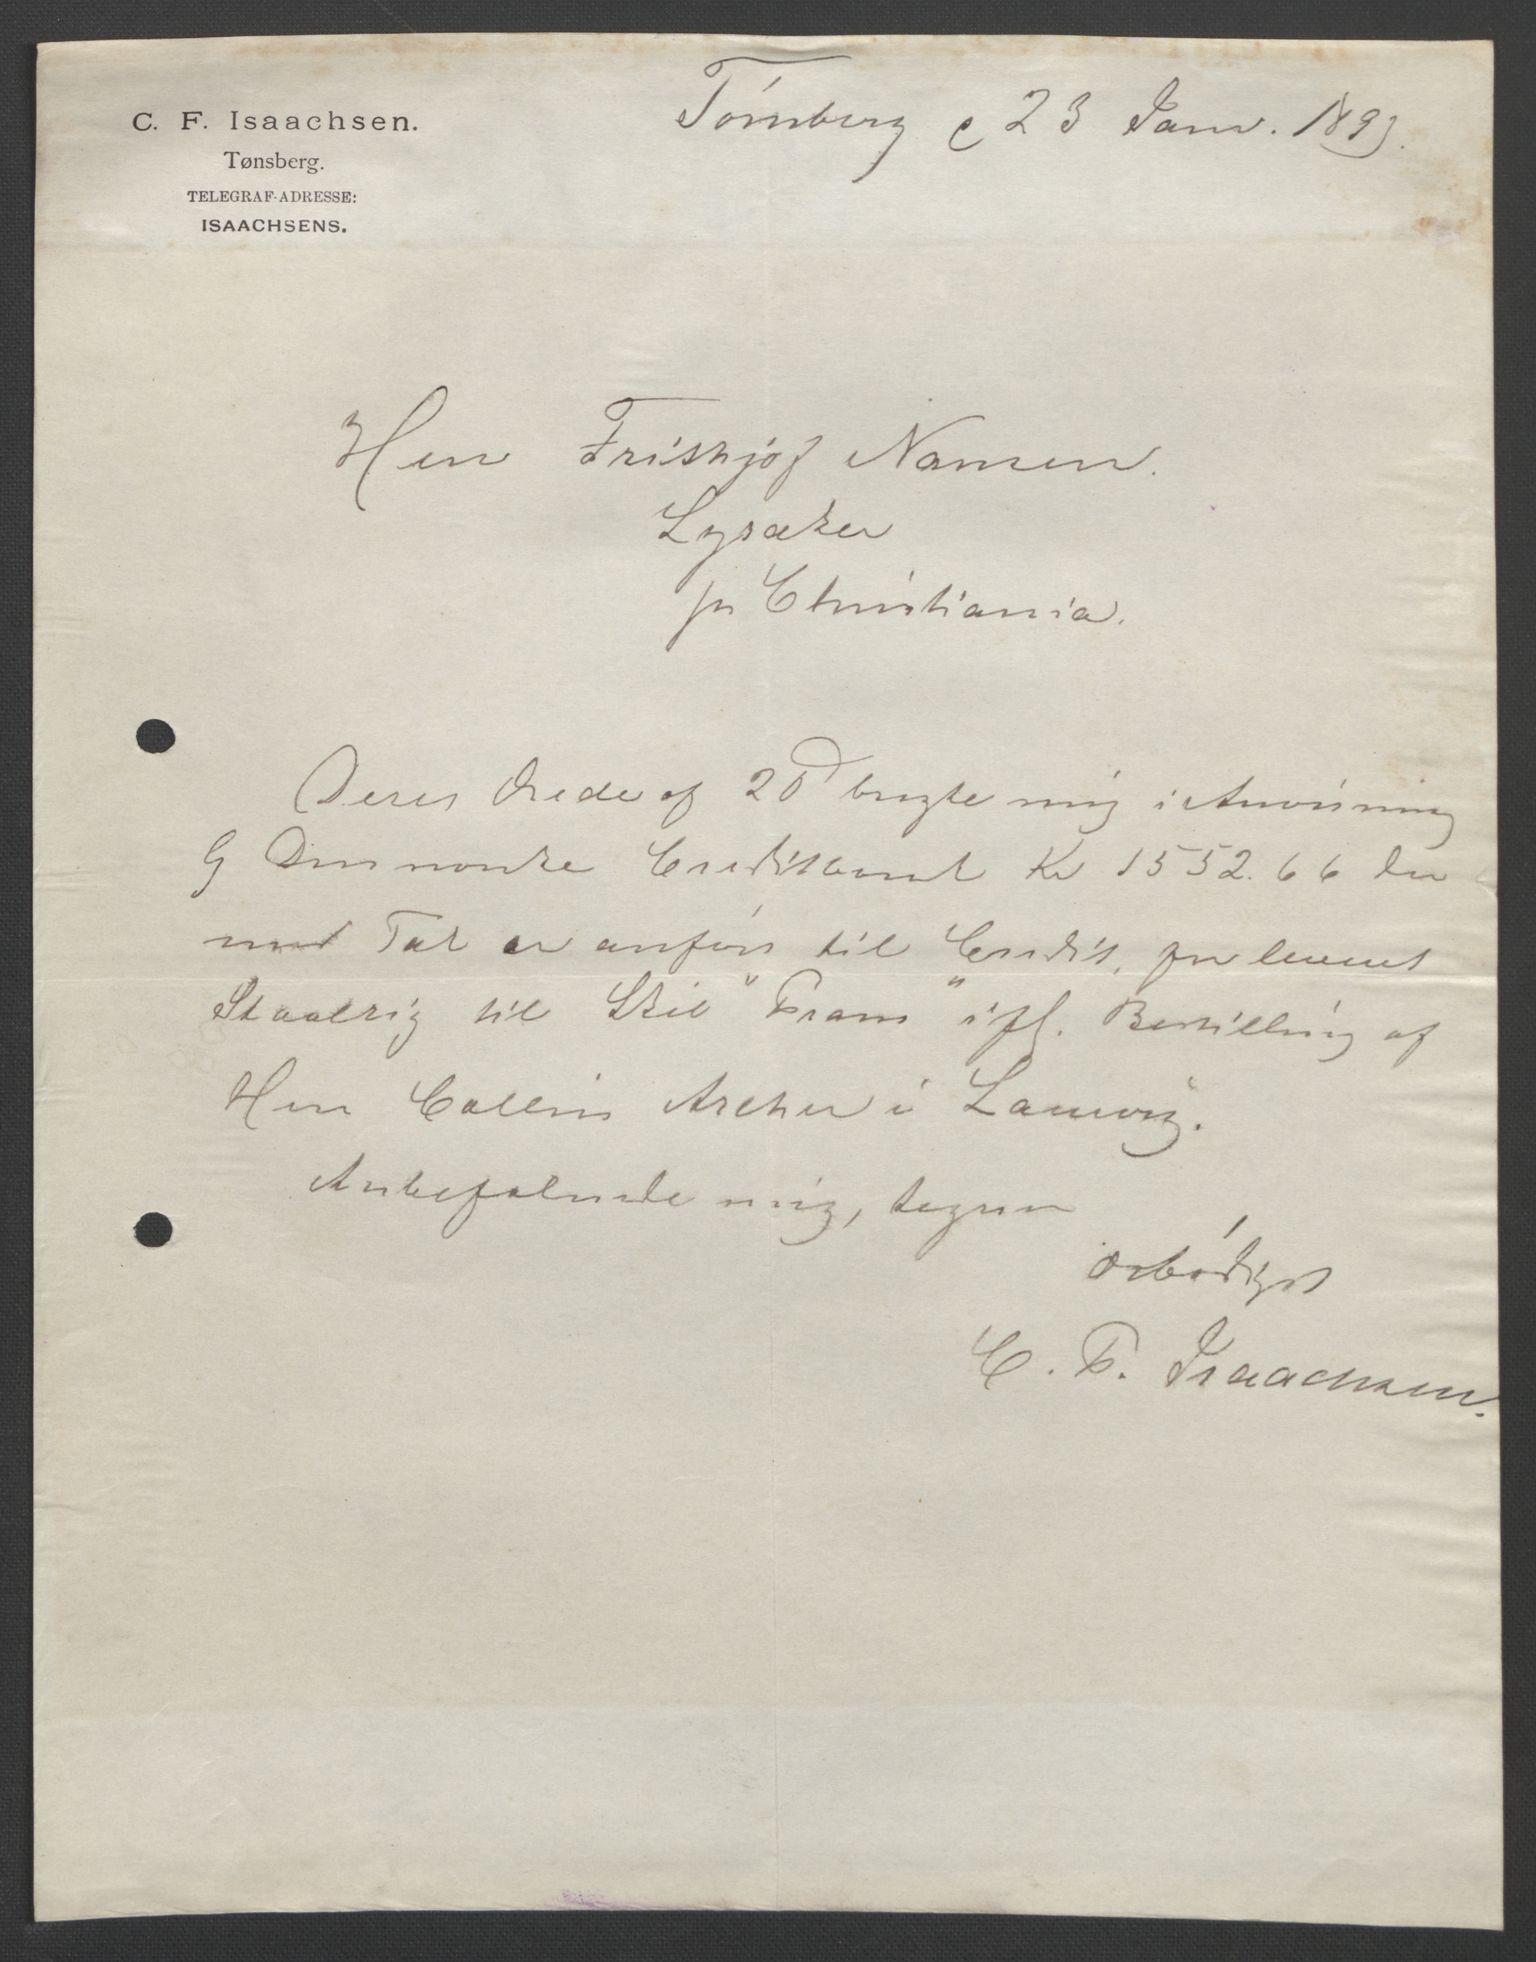 C. F. Isaachsen.
Tønsberg.
TELEGRAF-ADRESSE:
ISAACHSENS.
Tönsberg d 23 Janr. 1893.
Herr Frithjof Nansen.
Lysaker
pr Christiania.
Deres Ærede af 20d bragte mig i Anvisning
Den norske Creditbank Kr 1552.66 der
med Tak er anført til Credit, for leveret
Staalrig til Skib "Fram" ifl. Bestilling af
Herr Collin Archer i Laurvig.
Anbefalende mig, tegner
ærbödigst
C. F. Isaachsen.